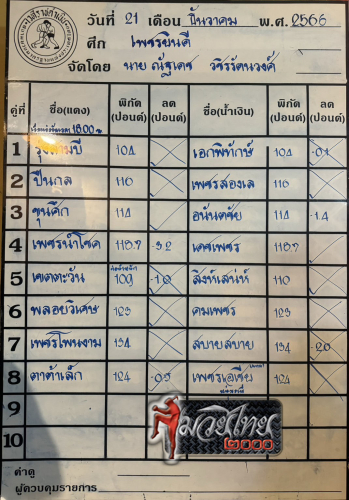 วันที่ 21 เดือน ธันวาคม พ.ศ. 2566
ศึก เพชรยินดี
จัดโดย นาย ณัฐเดช วชิรรัตนวงศ์
คู่ที่ ชื่อ(แดง) พิกัด (ปอนด์) ลด (ปอนด์) ชื่อ(น้ำเงิน) พิกัด (ปอนด์) ลด (ปอนด์)
18.00 น
1 104 เอกพิทักษ์ 104 -0.1
2 ปืนกล 110 เพชรสองเล 110
3 ขุนศึก 114 อนันตชัย 114 -1.4
4 เพชรนำโชค 118.7 -3.2 เดชเพชร 118.7
5 เขตตะวัน 109 -1.0 สิงห์เสน่ห์ 110
6 พลอยวิเศษ 123 คมเพชร 123
7 เพชรโพนงาม 134 สบายสบาย 134 -2.0
8 ตาต้าเล็ก 124 -0.5 เพชรเอเชีย 124
9
10
ค่าดู
ผู้ควบคุมรายการ
มวยไทย
๒๐๐๐